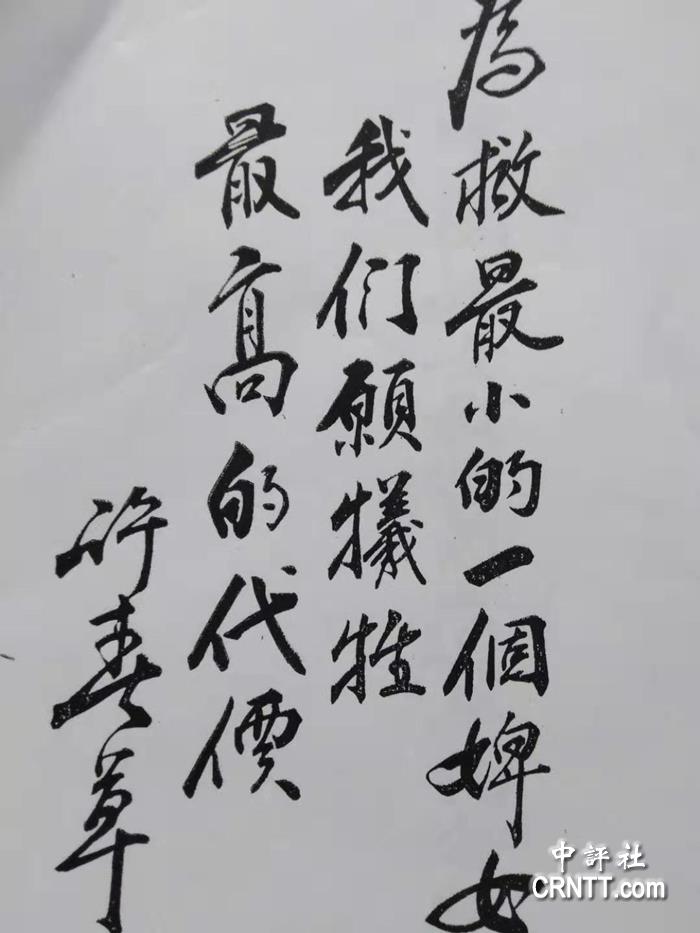 为救最小的一個婢女
我们願犠牲
最高的代價
许春草
中評社
CRNTT.com